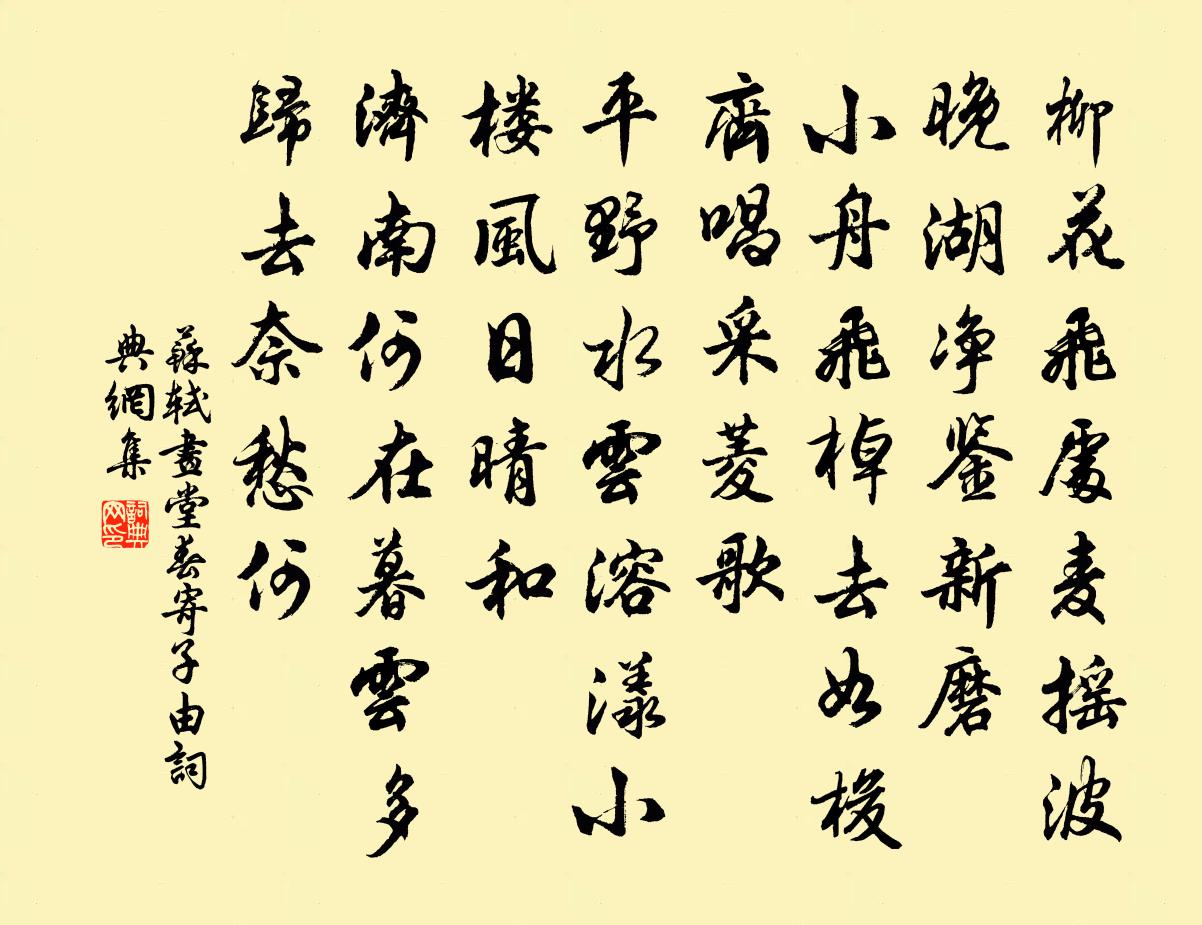 柳花飛處麦摇波
晚湖净鉴新磨
小舟飛棹去如梭
齊唱采菱歌
平野水雲溶漾小
楼風日晴和
濟南何在暮雲多
歸去奈愁何
蘇軾畫堂春寄子由詞
典網集
詞典网印